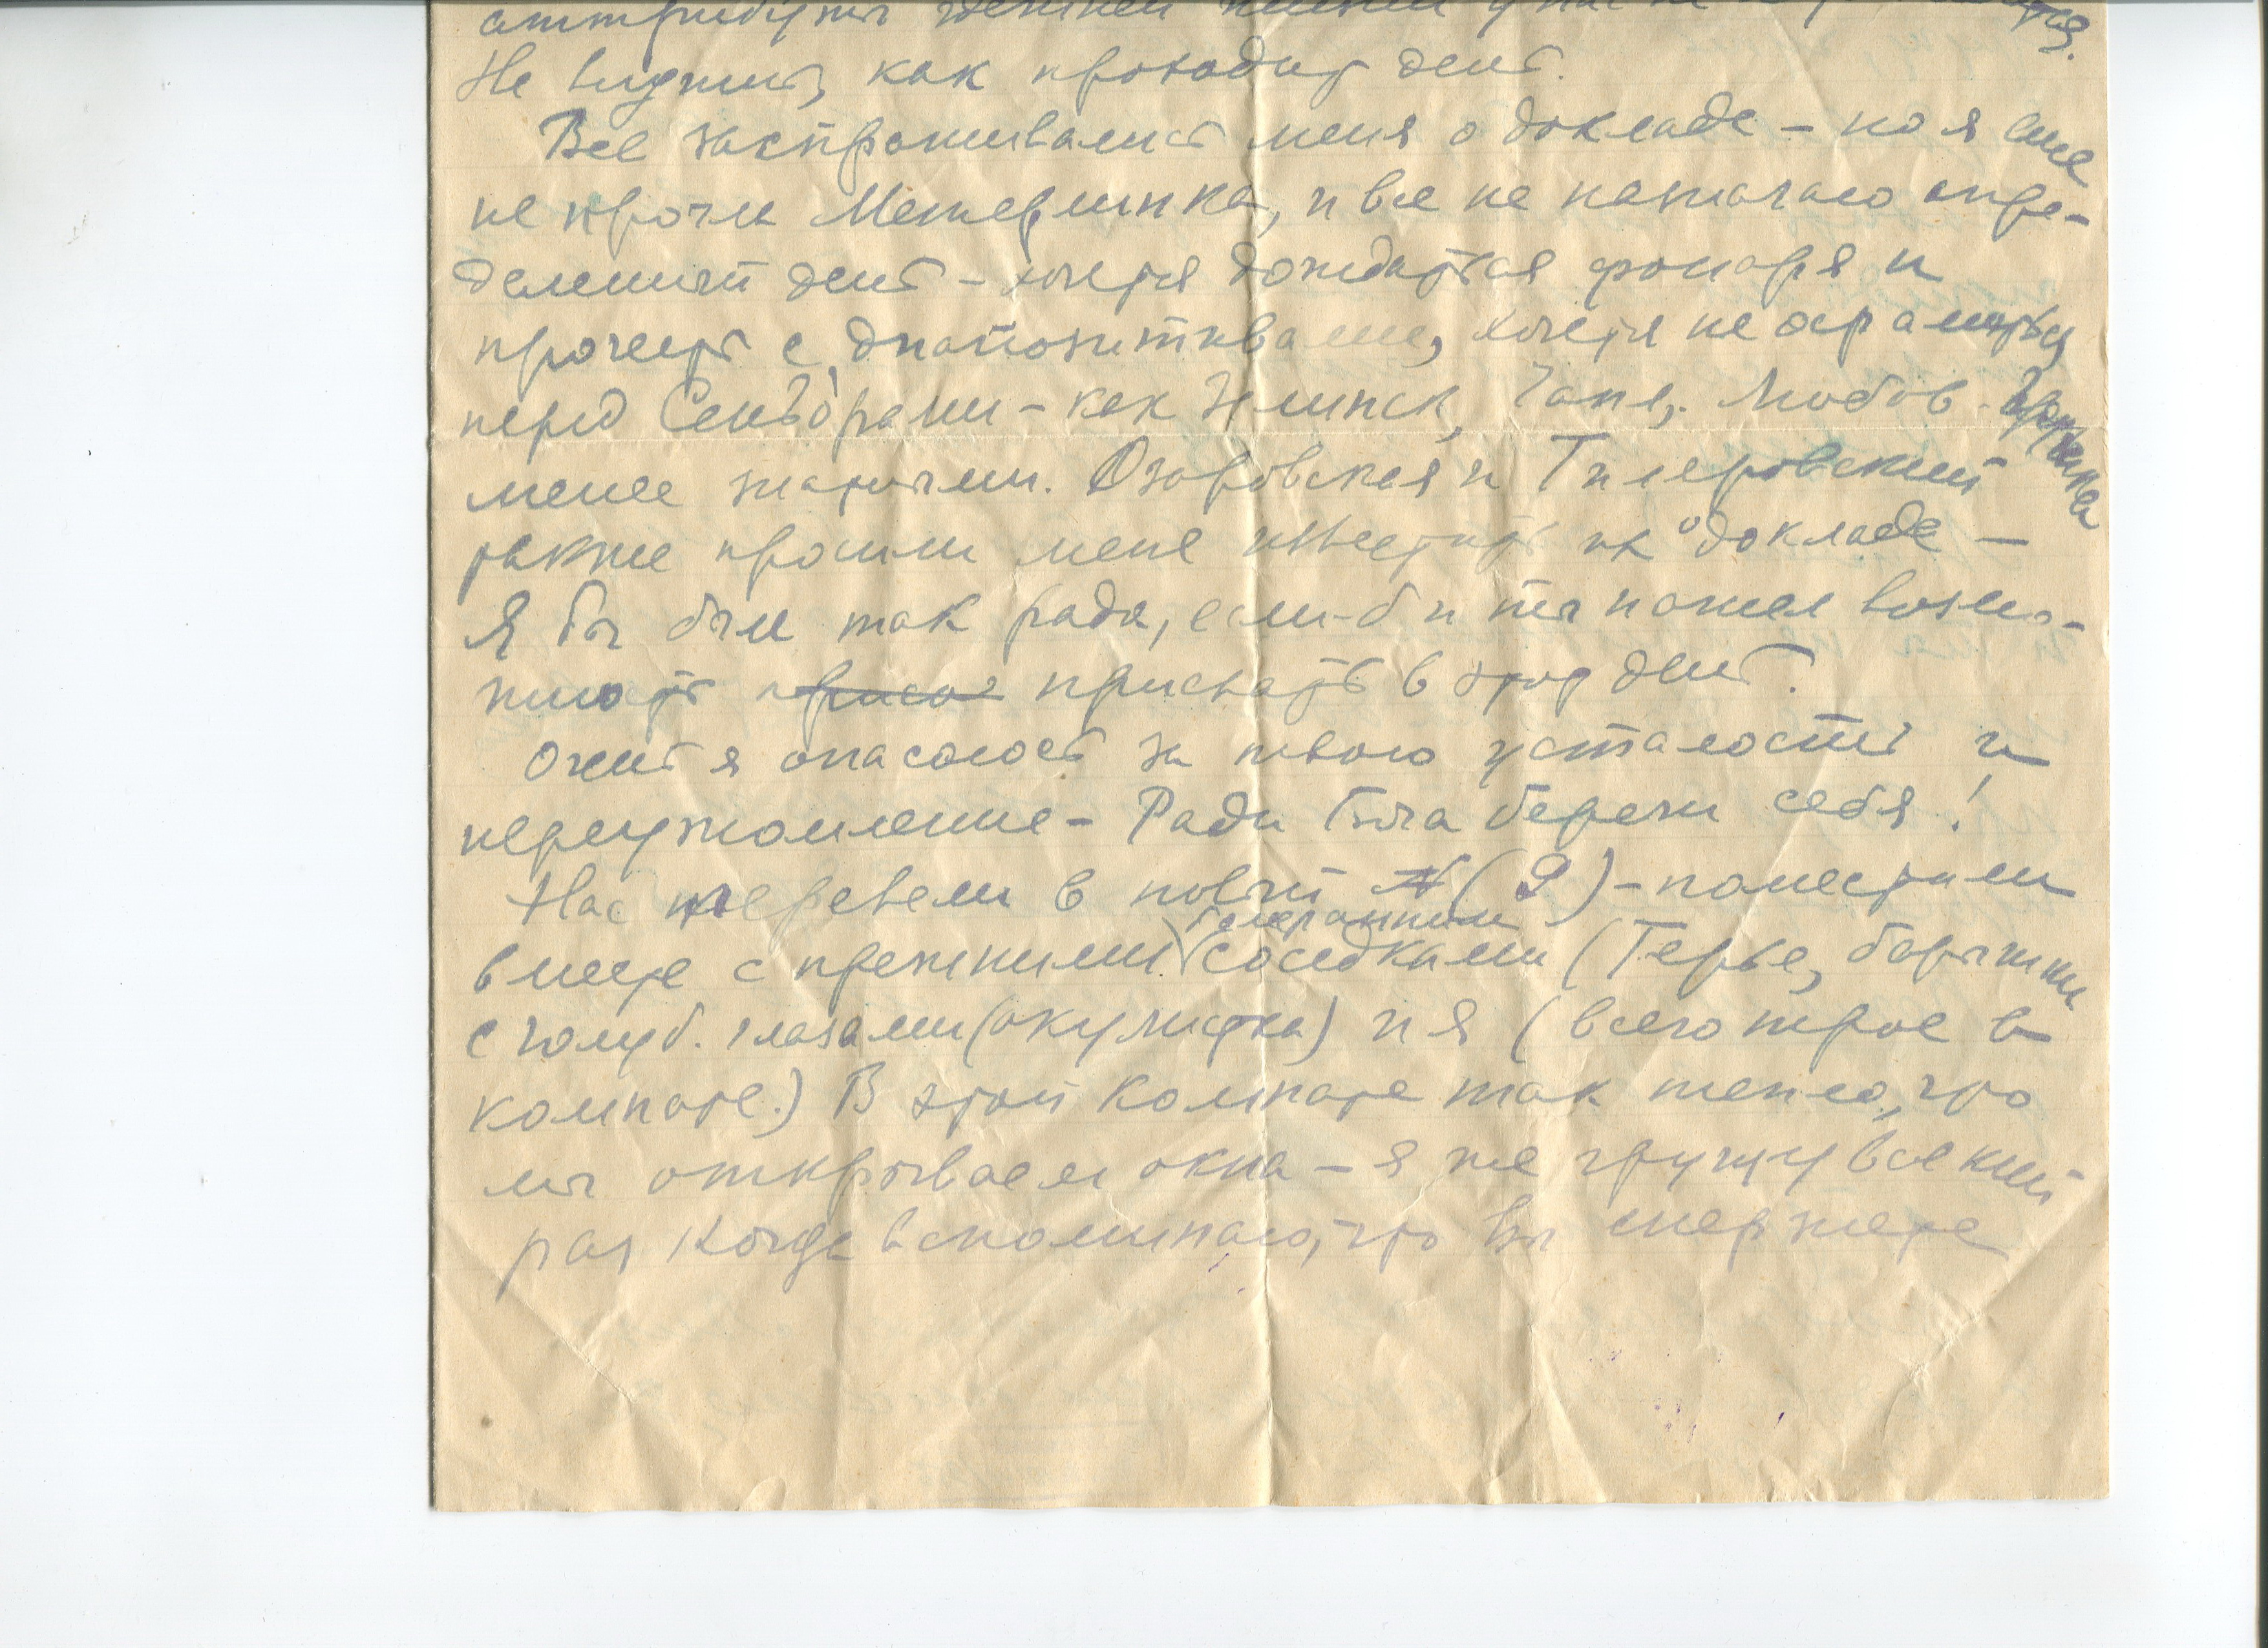 аттрибуты здешней жизни у нас не
Не видишь, как проходит день.
Все заспрашивались меня о докладе – но я еще
не прочла Метерлинка, и все не назначаю опре-
деленный день – хочется дождаться фонаря и
прочесть с диапозитивами, хочется не осрамиться
перед Сеньорами – как Зелинск, Любовь
менее значими. Озаровская и Тилеровский
также просили меня известить их о докладе –
Я бы была так рада, если-б и ты нашел возмо-
жность присо приехать в этот день.
Очень я опасаюсь за твою усталость и
переутомление – Ради Бога береги себя!
Нас перевели в новый № (9) – поместили
вместе с прежними
соседками (Герье, барышни
с голуб. глазами (окулистка) и я (всего трое в
комнате.) В этой комнате так тепло, что
мы открываем окна – я же грущу всякий
раз когда вспоминаю, что вы мерзнете